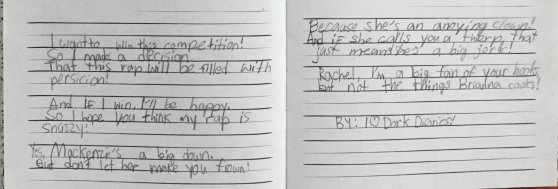 I want to win this competition!
So I made a decision.
That this rap will be filled with
persicion!
And If I win, I'll be happy.
So I hope you think my rap is
snazzy!
Yes, Mackenzie's a big clown.
But don't let her make you frown!
Because she's an anoying clown!
And if she calls you a twerp, that
just means she's a big jerk!
Rachel, I'm a big fan of your books,
but not the things Brianna cooks!
BY: I ♡ Dork Diaries!